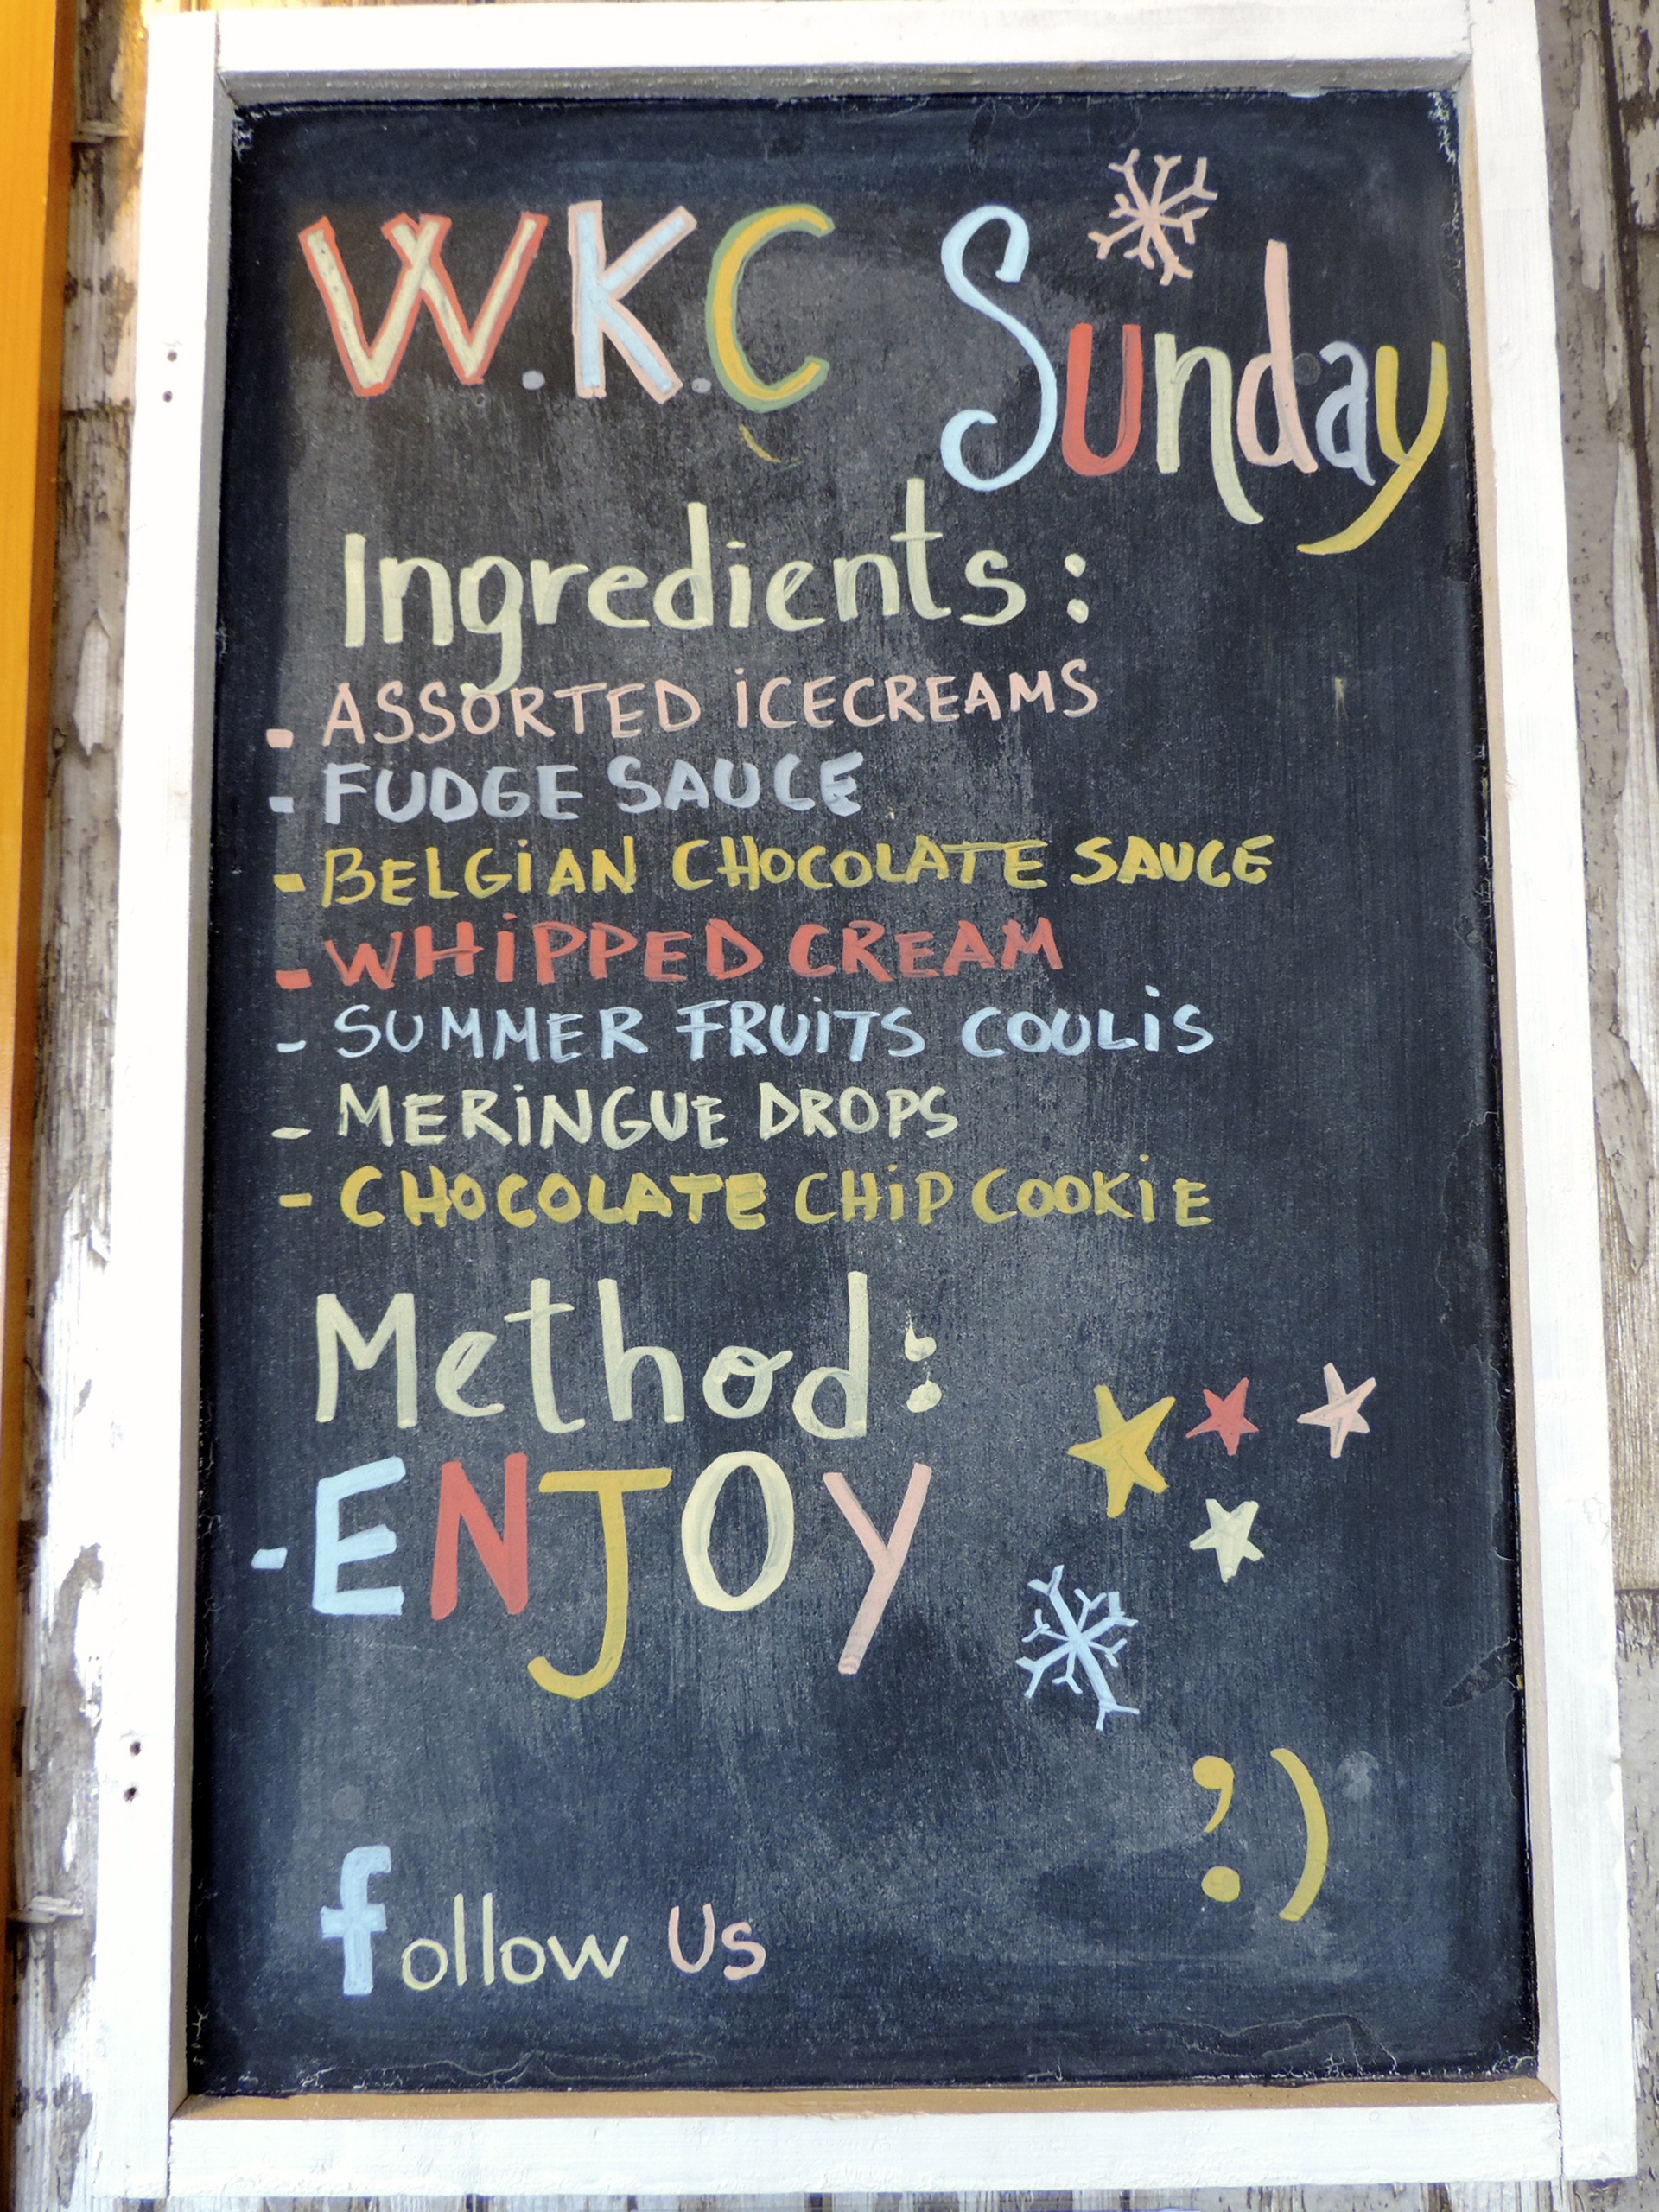 W.K.C Sunday
Ingredients:
- ASSORTED ICECREAMS
- FUDGE SAUCE
- BELGIAN CHOCOLATE SAUCE
- WHIPPED CREAM
- SUMMER FRUITS COULIS
- MERINGUE DROPS
- CHOCOLATE CHIP COOKIE
Method:
- ENJOY
;)
follow Us